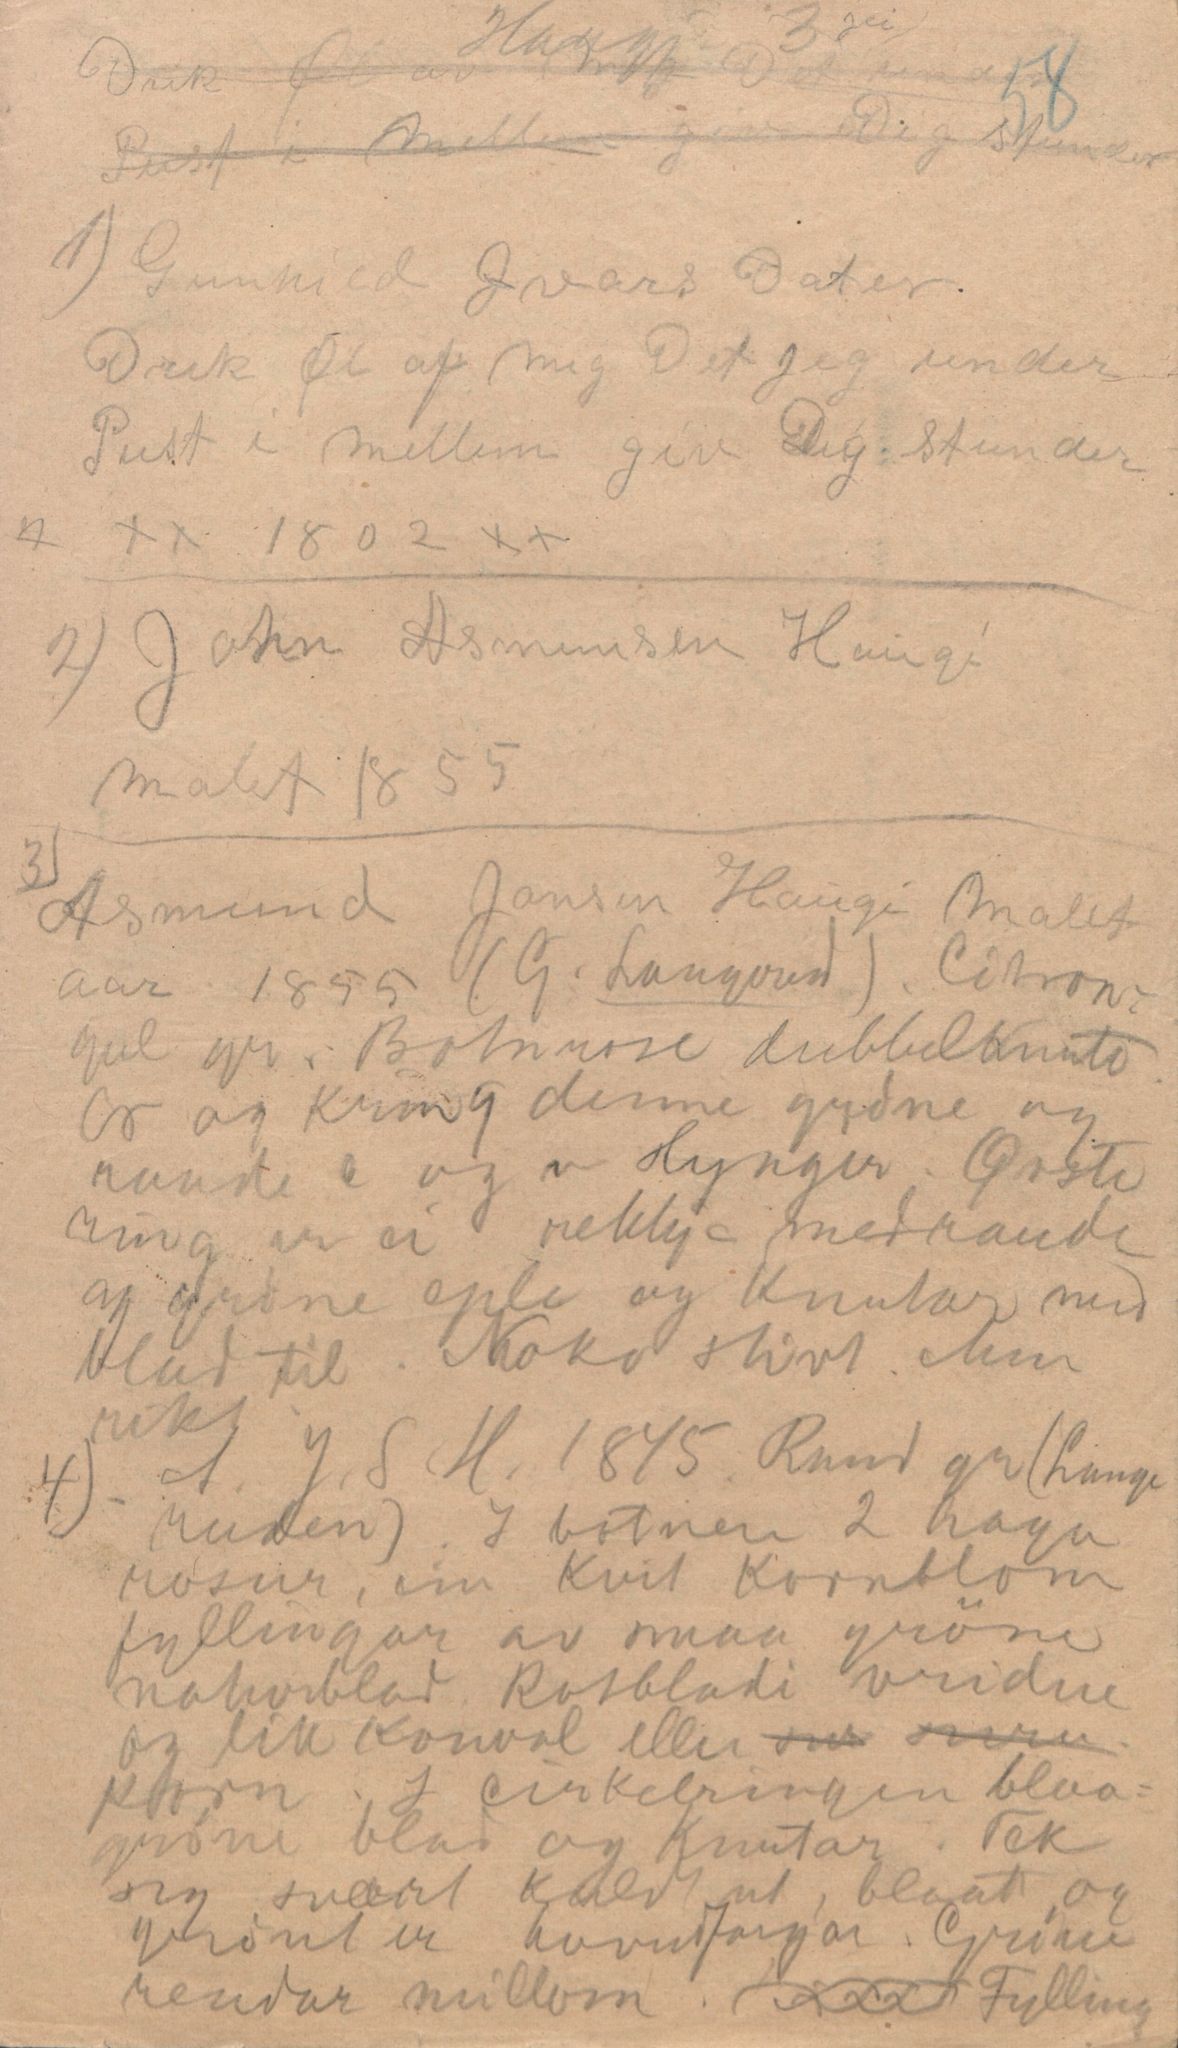 Haugi 3
58
Drik Øl av mig Det under
Pust i Mellem giv Dig stunder
1) Gunhild Jvars Dater.
Drik Øl af mig Det jeg under
Pust i mellem giv Dig stunder
xx 1802 xx
2) John Asmunsen Haugi
malet 1855
3)
Asmund Jonsen Haugi Malet
aar 1855 (G. Laugerud). Citron-
gul gr. Botnrose dubbelknuto
Or og kring denne grøne og
raude c og v slynger. Øvste
ring er ei rekkje med raude
og grøne eple og knutar med
blad til. Noko stivt. Men
rikt
4) - A. J. S. H. 1845. Rund gr (Lauge
ruden). I botnen 2 haga
rosur, ein kvit kornblom
fyllingar av smaa gröne
naturblad. Rotbladi vridne
og lik konval eller
korn. I cirkelringen blaa=
gröne blad og knutar. Tek
seg svært kaldt ut, blaat og
grönt er hovudfargar. Gröne
rendar millom. Fylling